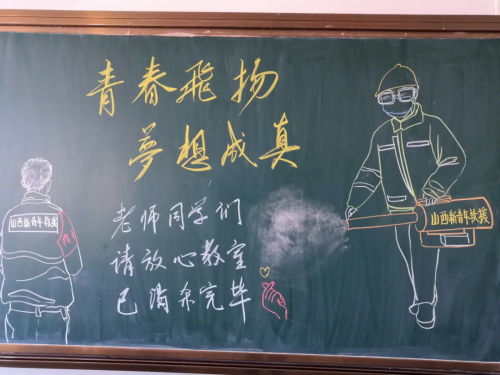 青春飛扬
夢想成真
老师同学们
请放心教室
已消杀完毕
山西新青年救援
山西新青年救援